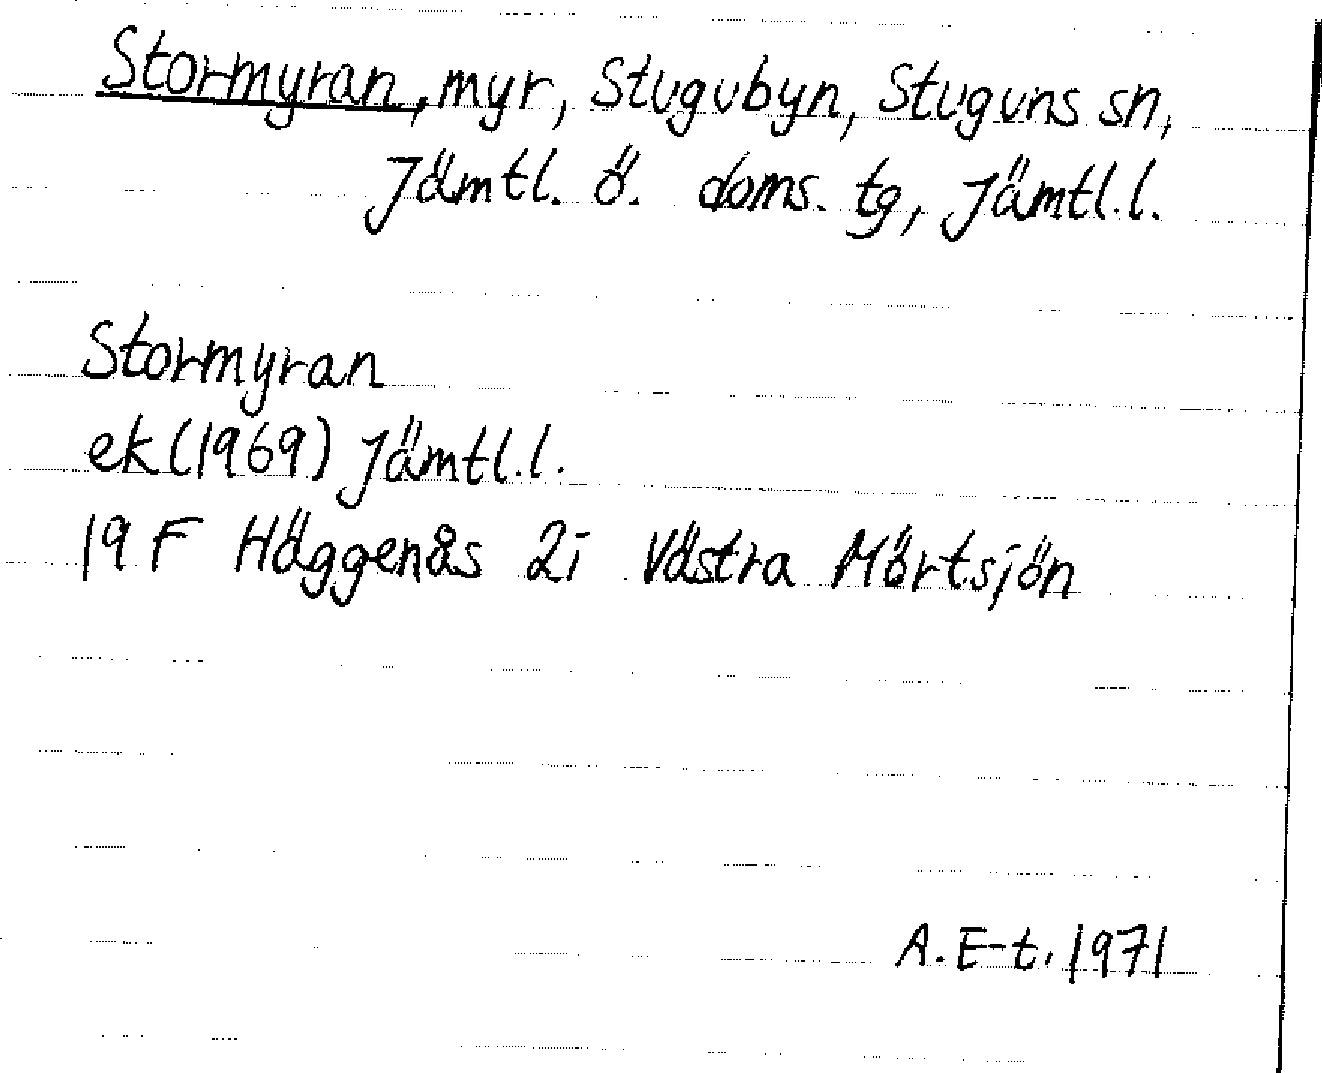 Stormyran, myr, Stugubyn, Stuguns sn,
Jämtl. ö. doms. tg, Jämtl.l.
Stormyran
ek(1969) Jämtl.l.
19 F Häggenås 2i Västra Mörtsjön
A. E-t. 1971